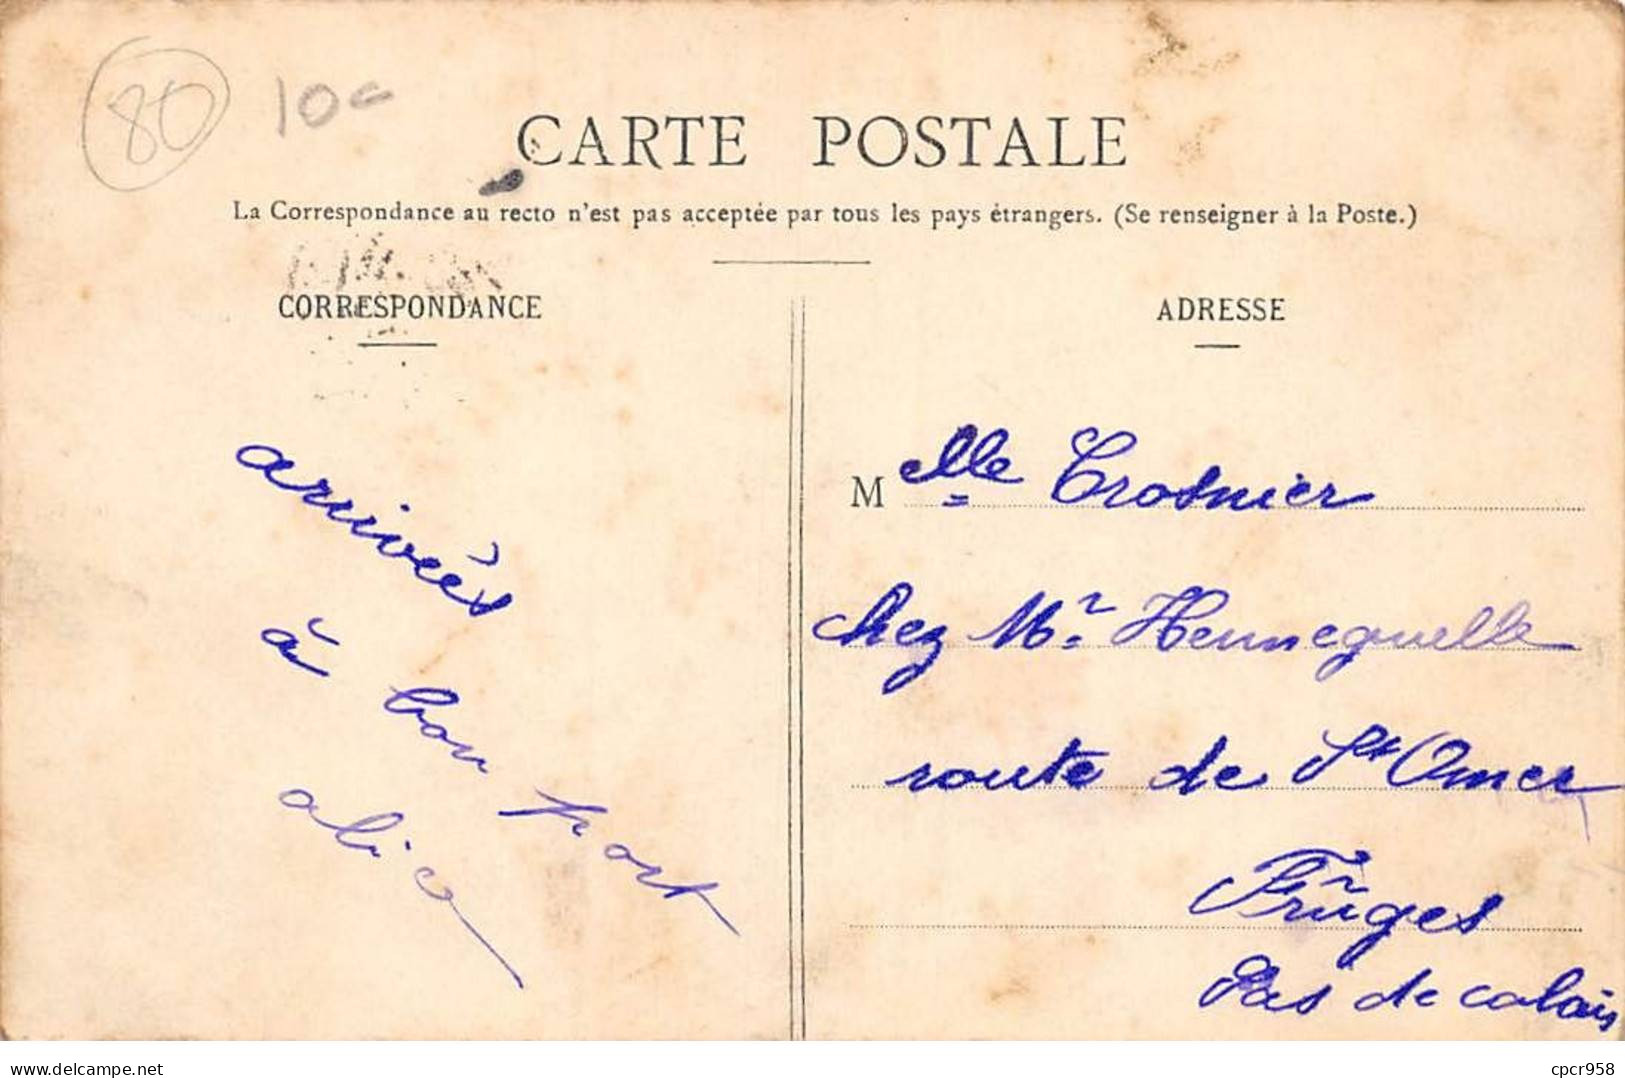 80 10c
CARTE POSTALE
La Correspondance au recto n'est pas acceptée par tous les pays étrangers. (Se renseigner à la Poste.)
CORRESPONDANCE
arrivées
à bon port
alice
ADRESSE
Melle Crosnier
chez Mr Hennequelle
route de St Omer
Fruges
Pas de calais
delcampe.net
cpcr958